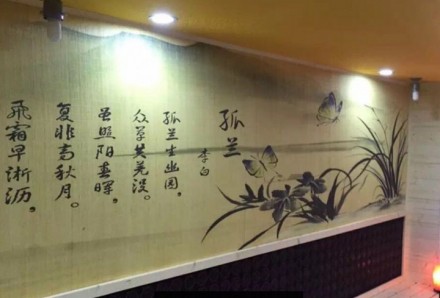 孤兰
李白
孤兰生幽园，
众草共芜没。
虽照阳春晖，
复非高秋月。
飛霜早淅沥，